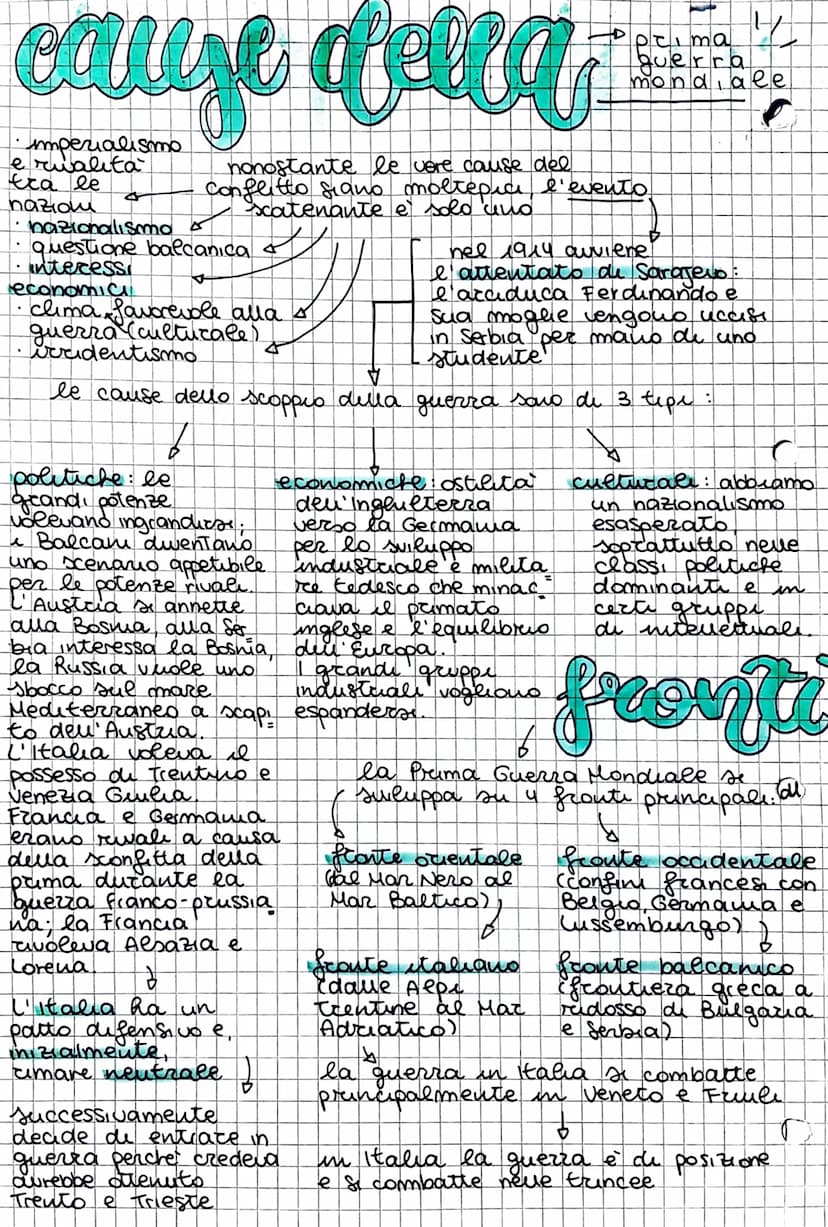 cause della → prima
guerra
mondiale
· imperialismo
e rivalità
tra le
nazioni
· nazionalismo
· questione balcanica
· interessi
economici
· clima favorevole alla
guerra (culturale)
· irridentismo
nonostante le vere cause del
conflitto siano molteplici, l'evento
scatenante è solo uno
nel 1914 avviene
l'attentato di Sarajevo:
l'arciduca Ferdinando e
sua moglie vengono uccisi
in Serbia per mano di uno
studente
le cause dello scoppio della guerra sono di 3 tipi:
politiche: le
grandi potenze
volevano ingrandirsi;
i Balcani diventano
uno scenario appetibile
per le potenze rivali.
L'Austria si annette
alla Bosnia, alla Ser
bia interessa la Bosnia,
la Russia vuole uno
sbocco sul mare
Mediterraneo a scapi=
to dell'Austria.
L'Italia voleva il
possesso di Trentino e
Venezia Giulia.
Francia e Germania
erano rivali a causa
della sconfitta della
prima durante la
guerra franco-prussia=
na; la Francia
rivoleva Alsazia e
Lorena.
L'Italia ha un
patto difensivo e,
inizialmente,
rimane neutrale
successivamente
decide di entrare in
guerra perché credeva
avrebbe ottenuto
Trento e Trieste
economiche: ostilità
dell'Inghilterra
verso la Germania
per lo sviluppo
industriale e milita
re tedesco che minac=
ciava il primato
inglese e l'equilibrio
dell'Europa.
I grandi gruppi
industriali vogliono
espandersi.
culturali: abbiamo
un nazionalismo
esasperato,
soprattutto nelle
classi politiche
dominanti e in
certi gruppi
di intellettuali.
fronti
la Prima Guerra Mondiale si
sviluppa su 4 fronti principali: di
fronte orientale
(dal Mar Nero al
Mar Baltico)
fronte occidentale
(confini francesi con
Belgio, Germania e
Lussemburgo)
fronte italiano
(dalle Alpi
Trentine al Mar
Adriatico)
fronte balcanico
(frontiera greca a
ridosso di Bulgaria
e Serbia)
la guerra in Italia si combatte
principalmente in Veneto e Friuli
in Italia la guerra è di posizione
e si combatte nelle trincee